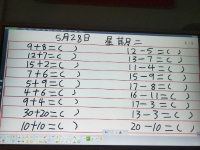 5月28日 星期二
9+8=( ) 12-5=( )
12+7=( ) 13-7=( )
15+2=( ) 11-4=( )
7+6=( ) 15-9=( )
5+9=( ) 17-8=( )
4+6=( ) 16-11=( )
9+4=( ) 17-3=( )
30+20=( ) 13-3=( )
10+10=( ) 20-10=( )